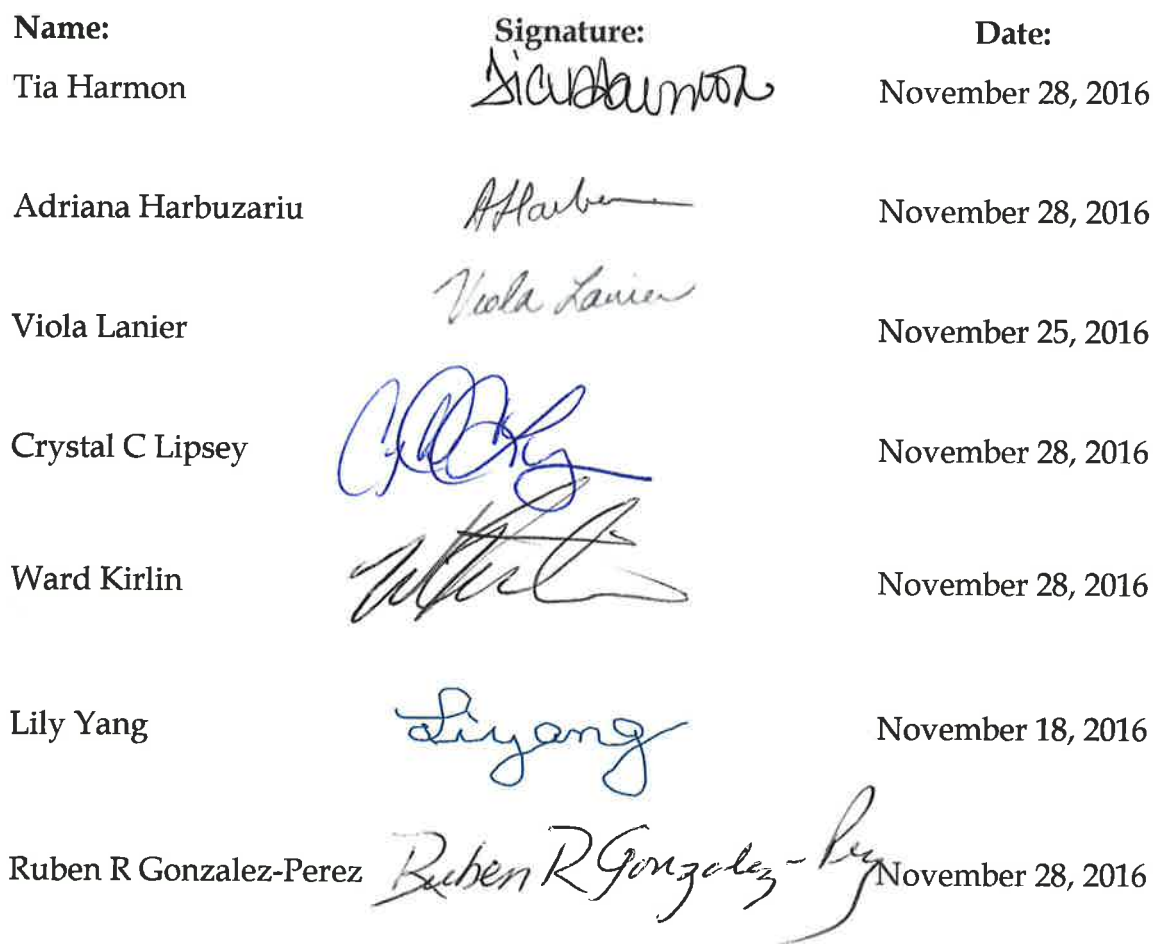 Name: Signature: Date:
Tia Harmon Tia Harmon November 28, 2016
Adriana Harbuzariu AHarbu November 28, 2016
Viola Lanier Viola Lanier November 25, 2016
Crystal C Lipsey November 28, 2016
Ward Kirlin November 28, 2016
Lily Yang Liyang November 18, 2016
Ruben R Gonzalez-Perez Ruben R Gonzalez-Perez November 28, 2016